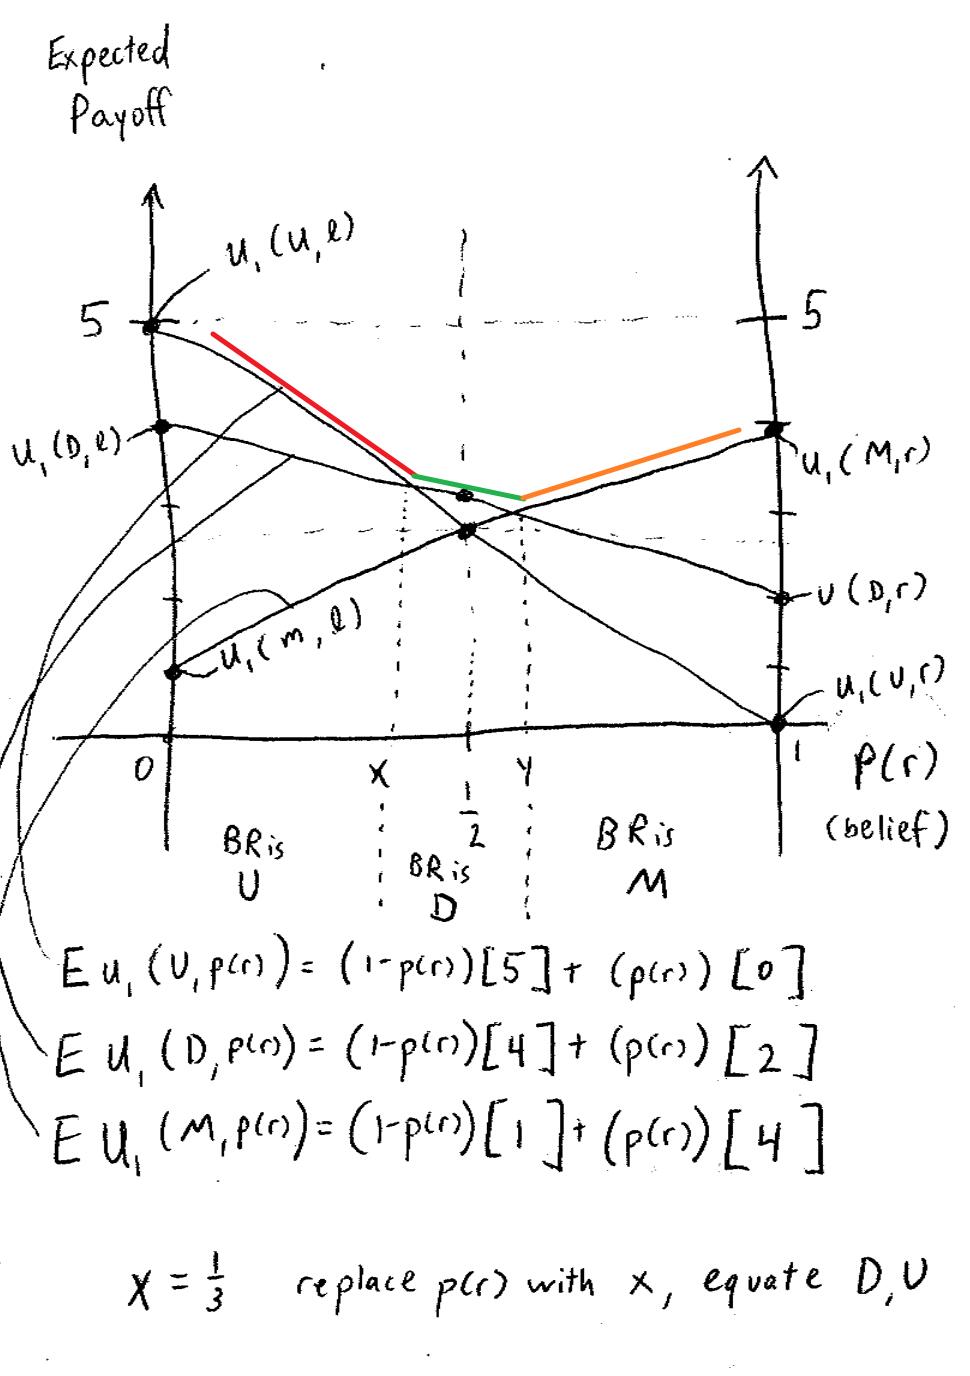 Expected
Payoff
u₁(U,l)
5
5
u₁(D,l)
u₁(M,r)
U(D,r)
u₁(m,l)
u₁(U,r)
0
X
1/2
Y
1
P(r)
(belief)
BR is
U
BR is
D
BR is
M
E u₁(U,p(r)) = (1-p(r))[5] + (p(r))[0]
E U₁(D,p(r)) = (1-p(r))[4] + (p(r))[2]
E U₁(M,p(r)) = (1-p(r))[1] + (p(r))[4]
X = 1/3 replace p(r) with x, equate D,U